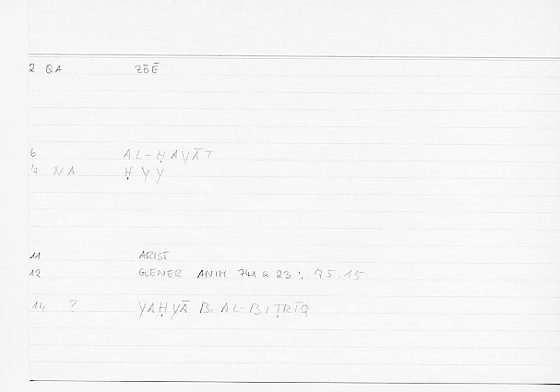 2 QA ZŌĒ
6 AL-ḤAYĀT
7 NA ḤYY
11 ARIST
12 GENER ANIM 741 a 23 : 75.15
14 ? YAḤYĀ B. AL-BIṬRĪQ